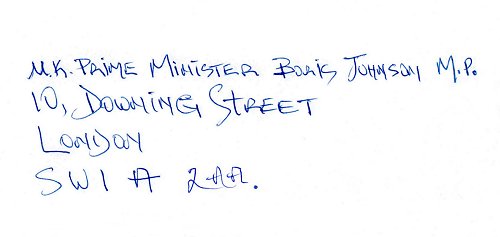 U.K. PRIME MINISTER BORIS JOHNSON M.P.
10, DOWNING STREET
LONDON
SW1A 2AA.